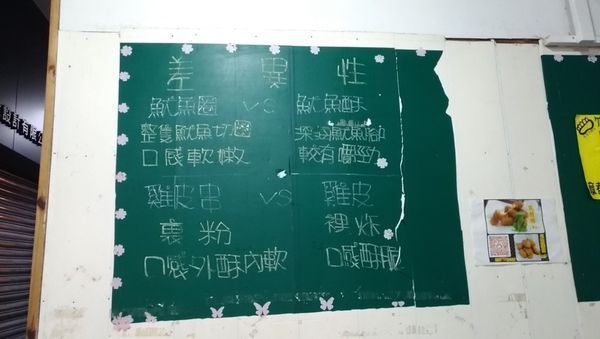 差異性
魷魚圈 VS 魷魚酥
整隻魷魚切圈 魷魚腳
口感軟嫩 較有嚼勁
雞皮串 VS 雞皮
裹粉 裸炸
口感外酥內軟 口感酥脆